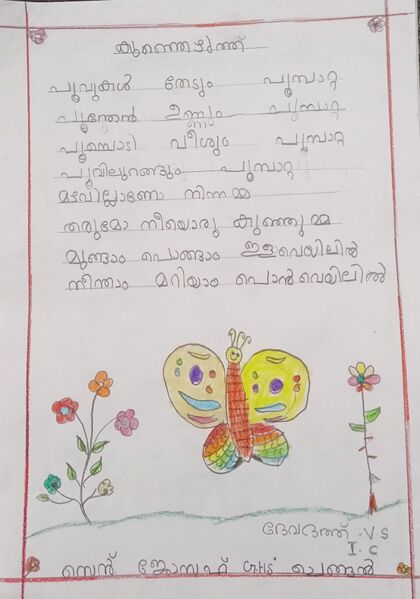 കുഞ്ഞെഴുത്ത്
പൂവുകൾ തേടും പൂമ്പാറ്റ
പൂന്തേൻ ഉണ്ണും പൂമ്പാറ്റ
പൂമ്പൊടി വീശും പൂമ്പാറ്റ
പൂവിലുറങ്ങും പൂമ്പാറ്റ
മഴവില്ലാണോ നിന്നമ്മ
തരുമോ നീയൊരു കുഞ്ഞുമ്മ
മുങ്ങാം പൊങ്ങാം ഇളവെയിലിൽ
നീന്താം മറിയാം പൊൻവെയിലിൽ
ദേവദത്ത്.V S
I.C
സെന്റ്. ജോസഫ് GHS ചെങ്ങൽ